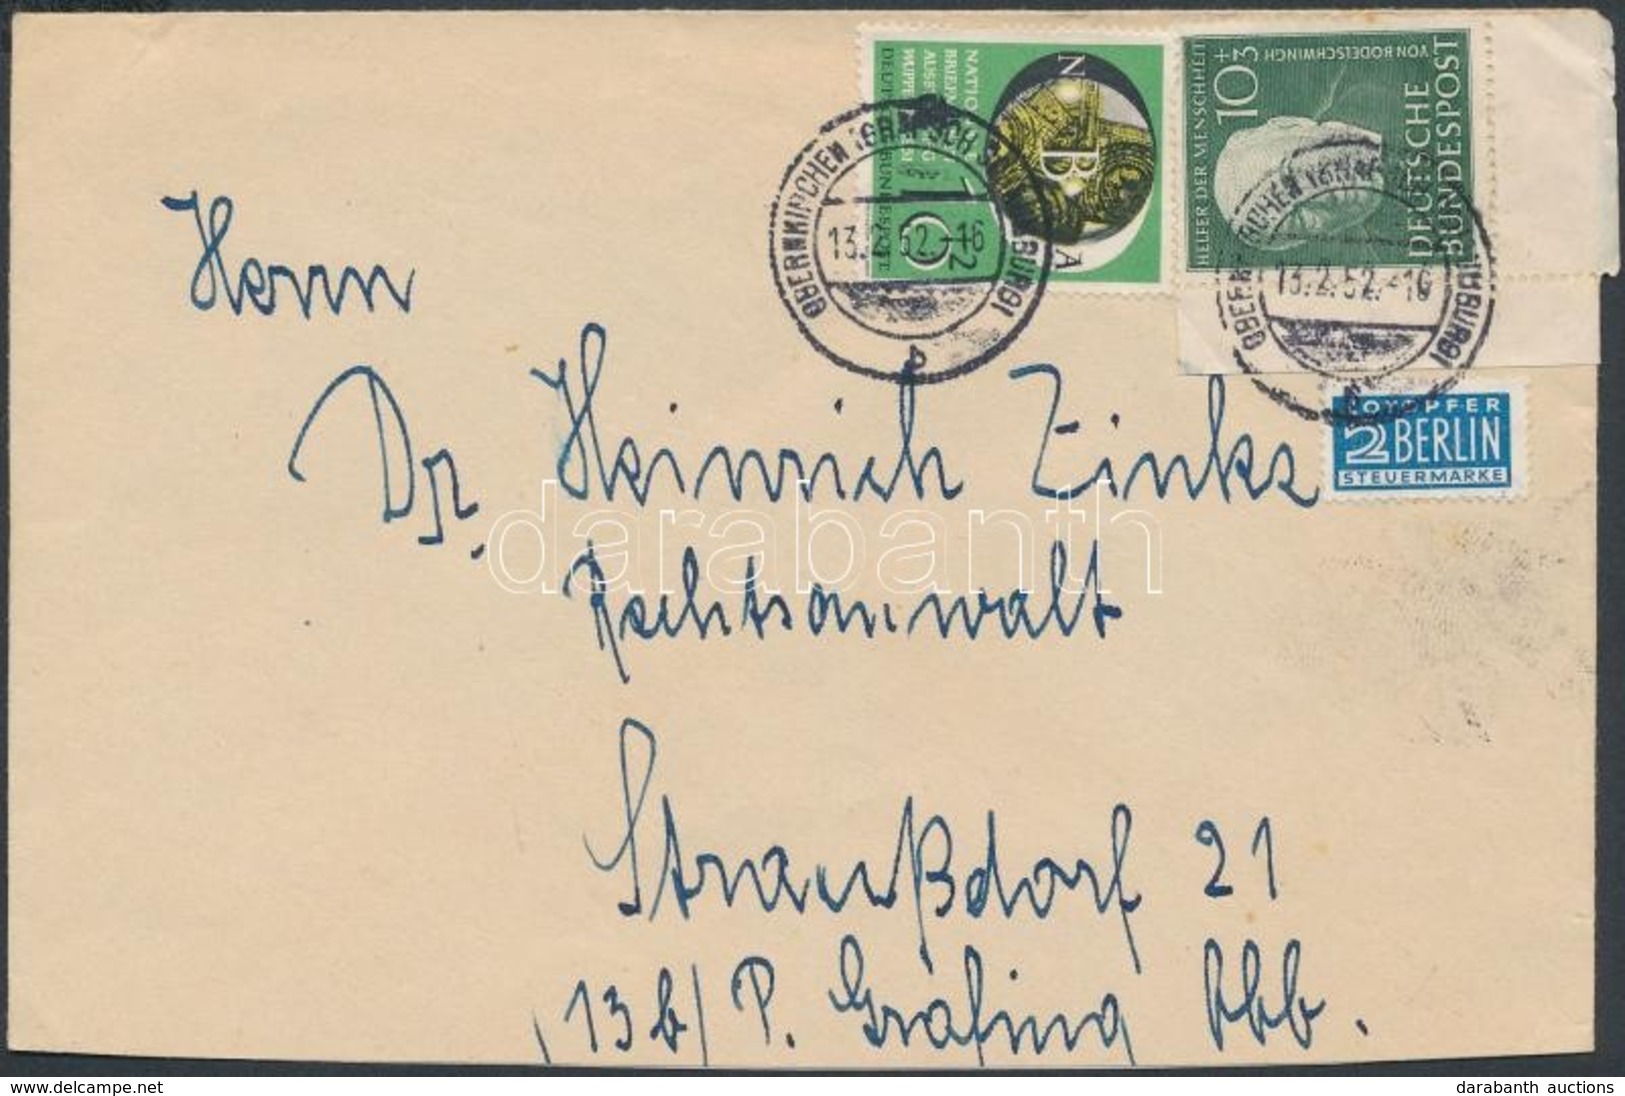 NATIO
BRIEF
AUSS
WUPPE
DEUTSCHE BUNDESPOST
N B A
10+2
10+3
HELFER DER MENSCHHEIT
VON BODELSCHWINGH
DEUTSCHE
BUNDESPOST
OBERNKIRCHEN (GRAFSCH SCHAUMBURG)
13.2.52.-16
b
OBERNKIRCHEN (GRAFSCH SCHAUMBURG)
13.2.52.-16
NOTOPFER
2 BERLIN
STEUERMARKE
Herrn
Dr. Heinrich Zinks
Rechtsanwalt
Straußdorf 21
13b/ P. Grafing Obb.
darabanth
https://www.delcampe.net
darabanth auctions